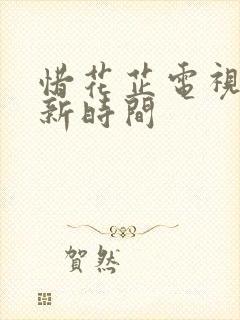 惜花芷電視
新時間
賀然